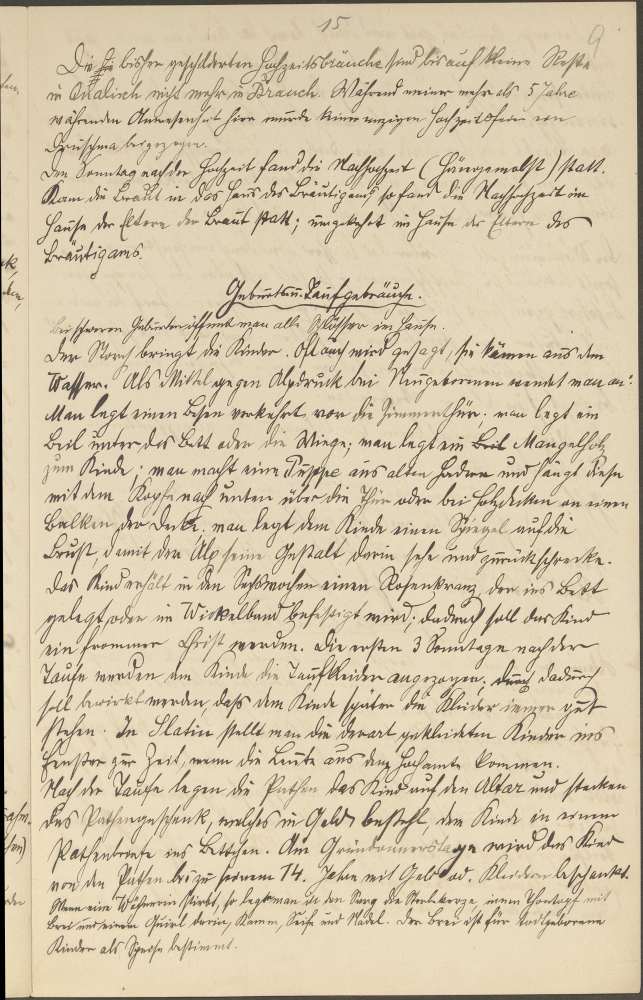 15
9
Die bisher geschilderten Hochzeitsbräuche sind bis auf kleine Reste
in Qualisch nicht mehr in Brauch. Während meiner mehr als 5 Jahre
währenden Anwesenheit hier wurde keiner einzigen Hochzeitsfeier ein
Druschma beigezogen.
Den Sonntag nach der Hochzeit fand die Nachhochzeit (Hängemolst) statt.
Kam die Braut in das Haus des Bräutigams so fand die Nachhochzeit im
Hause der Eltern der Braut statt; umgekehrt im Hause der Eltern des
Bräutigams.
Geburts u. Taufgebräuche.
Bei schweren Geburten öffnet man alle Schlösser im Hause.
Der Storch bringt die Kinder. Oft auch wird gesagt, sie kämen aus dem
Wasser. Als Mittel gegen Alpdruck bei Neugeborenen wendet man an:
Man legt einen Besen verkehrt vor die Zimmerthür. man legt ein
Beil unter das Bett oder die Wiege; man legt ein Beil Mangelholz
zum Kinde; man macht eine Puppe aus alten Hadern und hängt diese
mit dem Kopfe nach unten über die Thür oder bei Holzdecken an einen
Balken der Decke. man legt dem Kinde einen Spiegel auf die
Brust, damit der Alp seine Gestalt darin sehe und zurückschrecke.
Das Kind erhält in den Sechswochen einen Rosenkranz, der ins Bett
gelegt, oder im Wickelband befestigt wird; dadurch soll das Kind
ein frommer Christ werden. Die ersten 3 Sonntage nach der
Taufe werden dem Kinde die Taufkleider angezogen; durch dadurch
soll bewirkt werden, daß dem Kinde später die Kleider immer gut
stehen. In Slatin stellt man die derart gekleideten Kinder ins
Fenster zur Zeit, wenn die Leute aus dem Hochamte kommen.
Nach der Taufe legen die Pathen das Kind auf den Altar und stecken
das Pathengeschenk, welches in Geld besteht, dem Kinde in einem
Pathenbriefe ins Bettchen. Am Gründonnerstage wird das Kind
von den Pathen bis zu seinem 14. Jahre mit Geld od. Kleidern beschenkt.
Wenn eine Wöchnerin stirbt, so legt man in den Sarg die Sterbekerze, einen Thontopf mit
Brei und einem Quirl darin, Kamm, Seife und Nadel. Der Brei ist für todtgeborene
Kinder als Speise bestimmt.